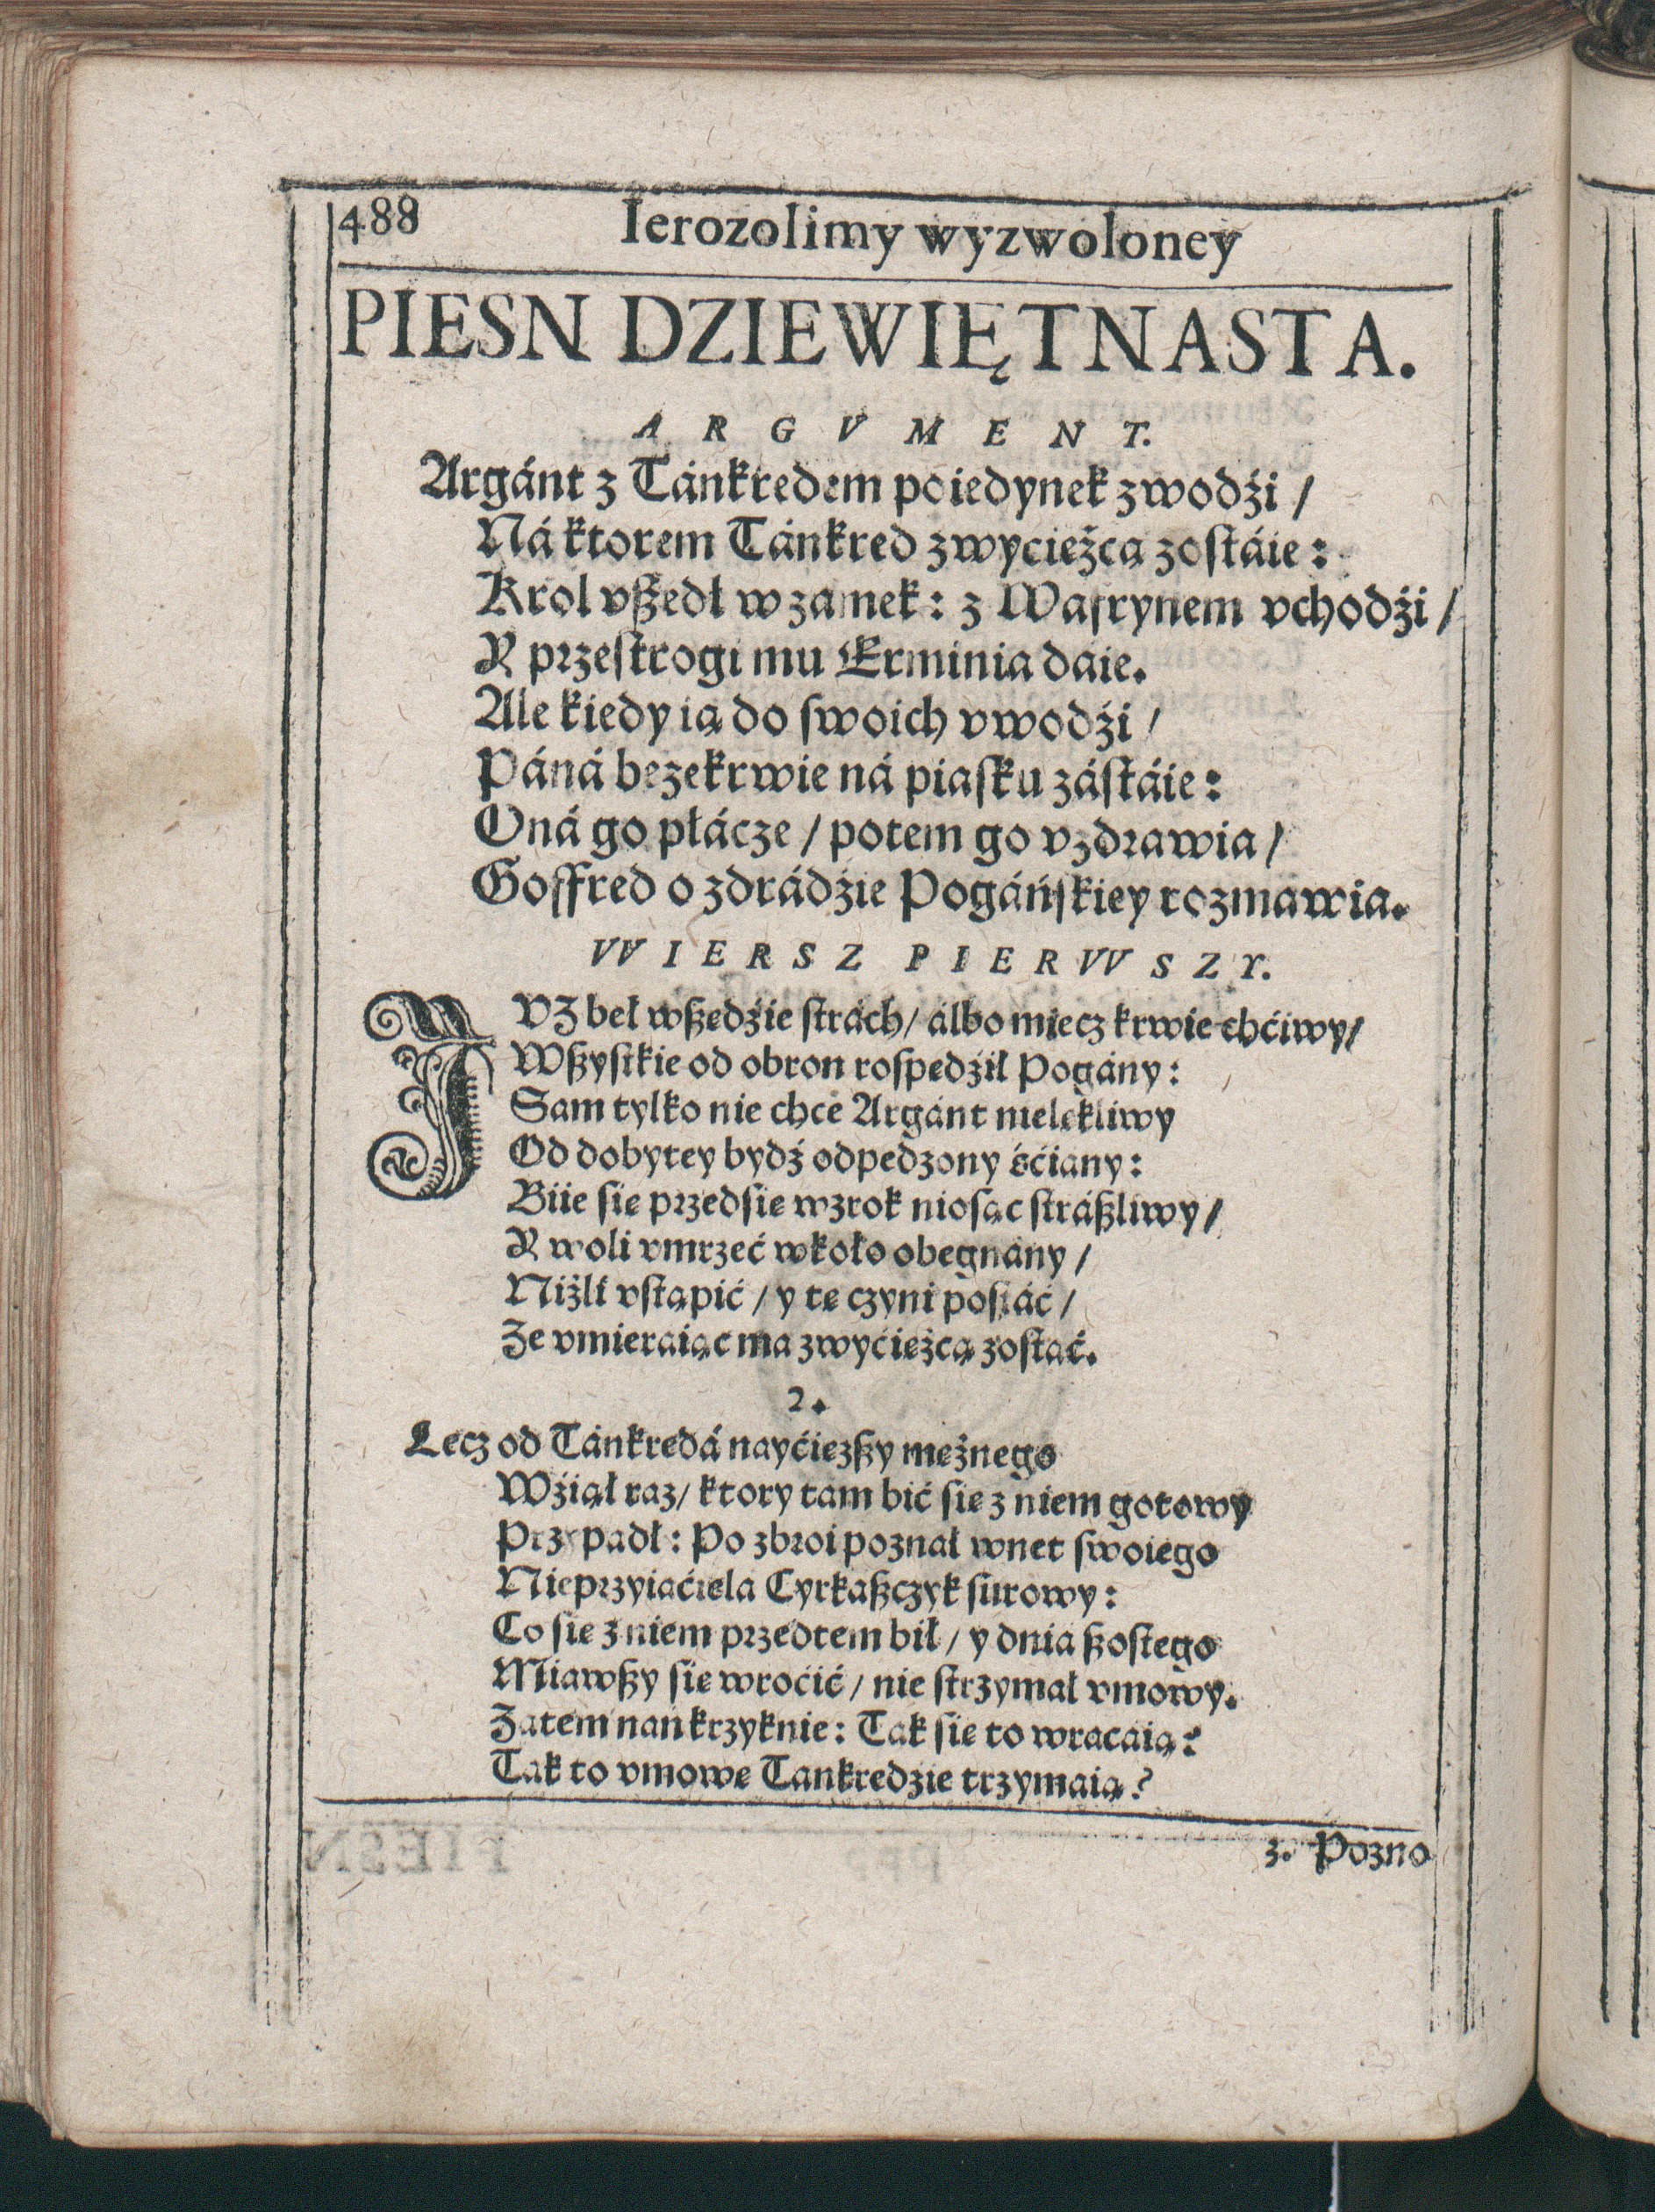 488 Ierozolimy wyzwoloney
PIESN DZIEWIĘTNASTA.
ARGVMENT.
Argánt z Tánkredem poiedynek zwodźi /
Ná ktorem Tánkred zwyciężcą zostáie:
Krol vszedł w zamek: z Wafrynem vchodźi /
Y przestrogi mu Erminia daie.
Ale kiedy ią do swoich vwodźi /
Páná bezekrwie ná piasku zástáie:
Oná go płácze / potem go vzdrawia /
Goffred o zdrádźie Pogáńskiey rozmawia.
WIERSZ PIERWSZY.
IVZ beł wszędźie strách / álbo miecz krwie chćiwy /
Wszystkie od obron rospędźił Pogány:
Sam tylko nie chce Argánt nielękliwy
Od dobytey bydź odpędzony śćiany:
Biie się przedsię wzrok niosąc strászliwy /
Y woli vmrzeć wkoło obegnány /
Niżli vstąpić / y tę czyni postáć /
Ze vmieraiąc ma zwyćiężcą zostać.
2.
Lecz od Tánkredá nayćięzszy mężnego
Wźiął raz / ktory tam bić się z niem gotowy
Przypadł: Po zbroi poznał wnet swoiego
Nieprzyiaćiela Cyrkaszczyk surowy:
Co się z niem przedtem bił / y dnia szostego
Miawszy się wroćić / nie strzymał vmowy.
Zatem nań krzyknie: Tak się to wracaią:
Tak to vmowę Tankredzie trzymaią?
3. Pozno